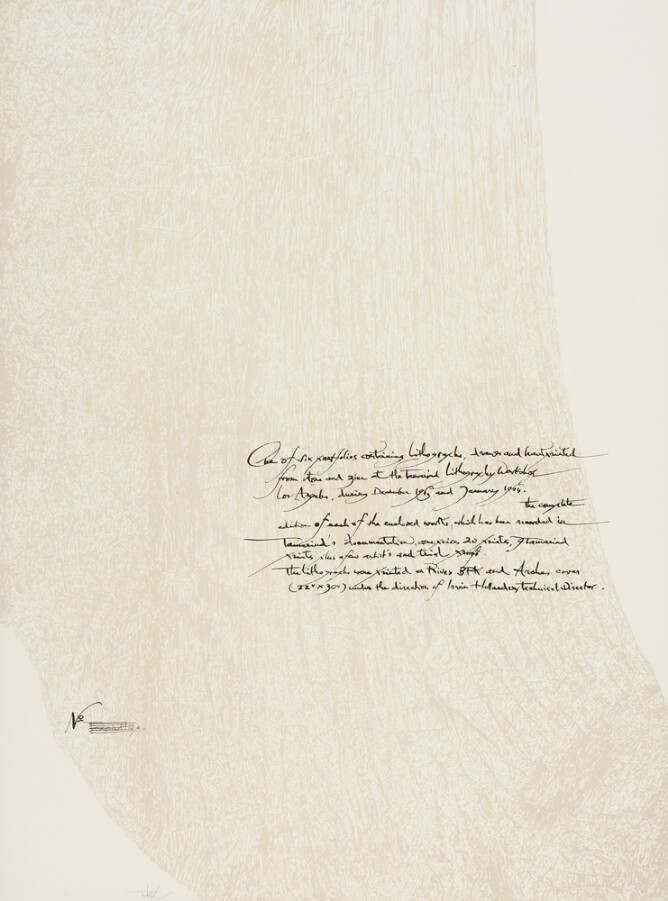 One of six portfolios containing lithographs, drawn and handprinted
from stone and zinc at the Tamarind Lithography Workshop
Los Angeles, during December 1963 and January 1964.
the complete
edition of each of the enclosed works, which has been recorded in
Tamarind's documentation, comprises 20 prints, 9 Tamarind
prints, plus a few artist's and trial proofs
The lithographs were printed on Rives BFK and Arches cover
(22" x 30") under the direction of Irwin Hollander, Technical Director.
No